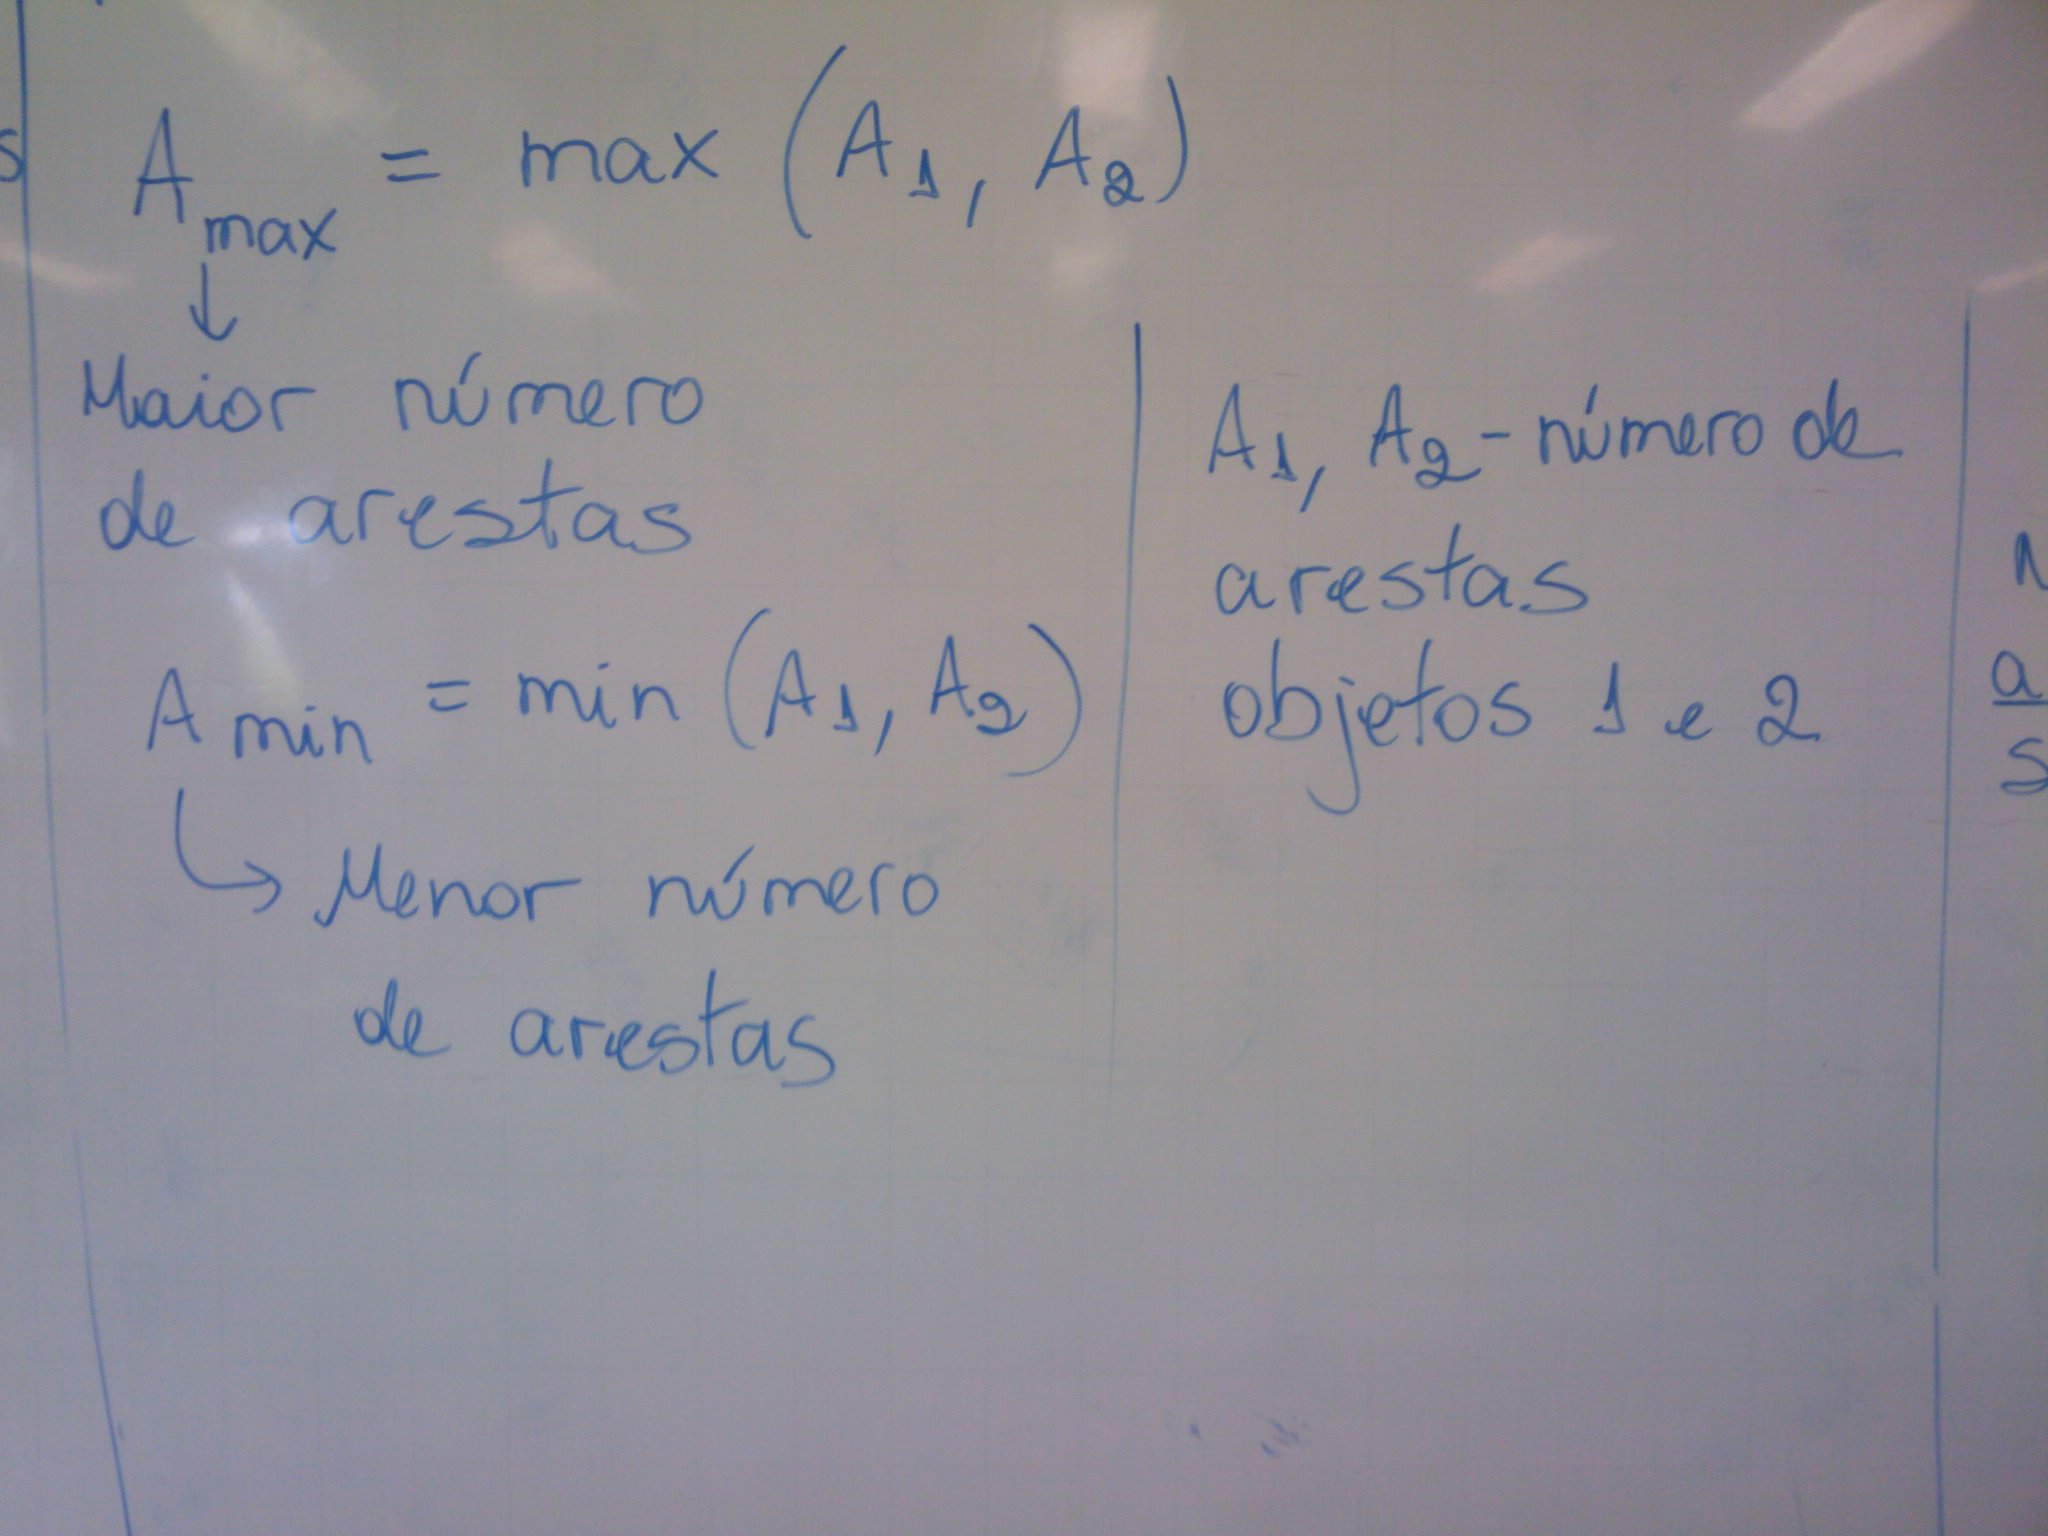 A_max = max (A_1, A_2)
↓
Maior número
de arestas
A_min = min (A_1, A_2)
↳ Menor número
de arestas
A_1, A_2 - número de
arestas
objetos 1 e 2
s
a
s